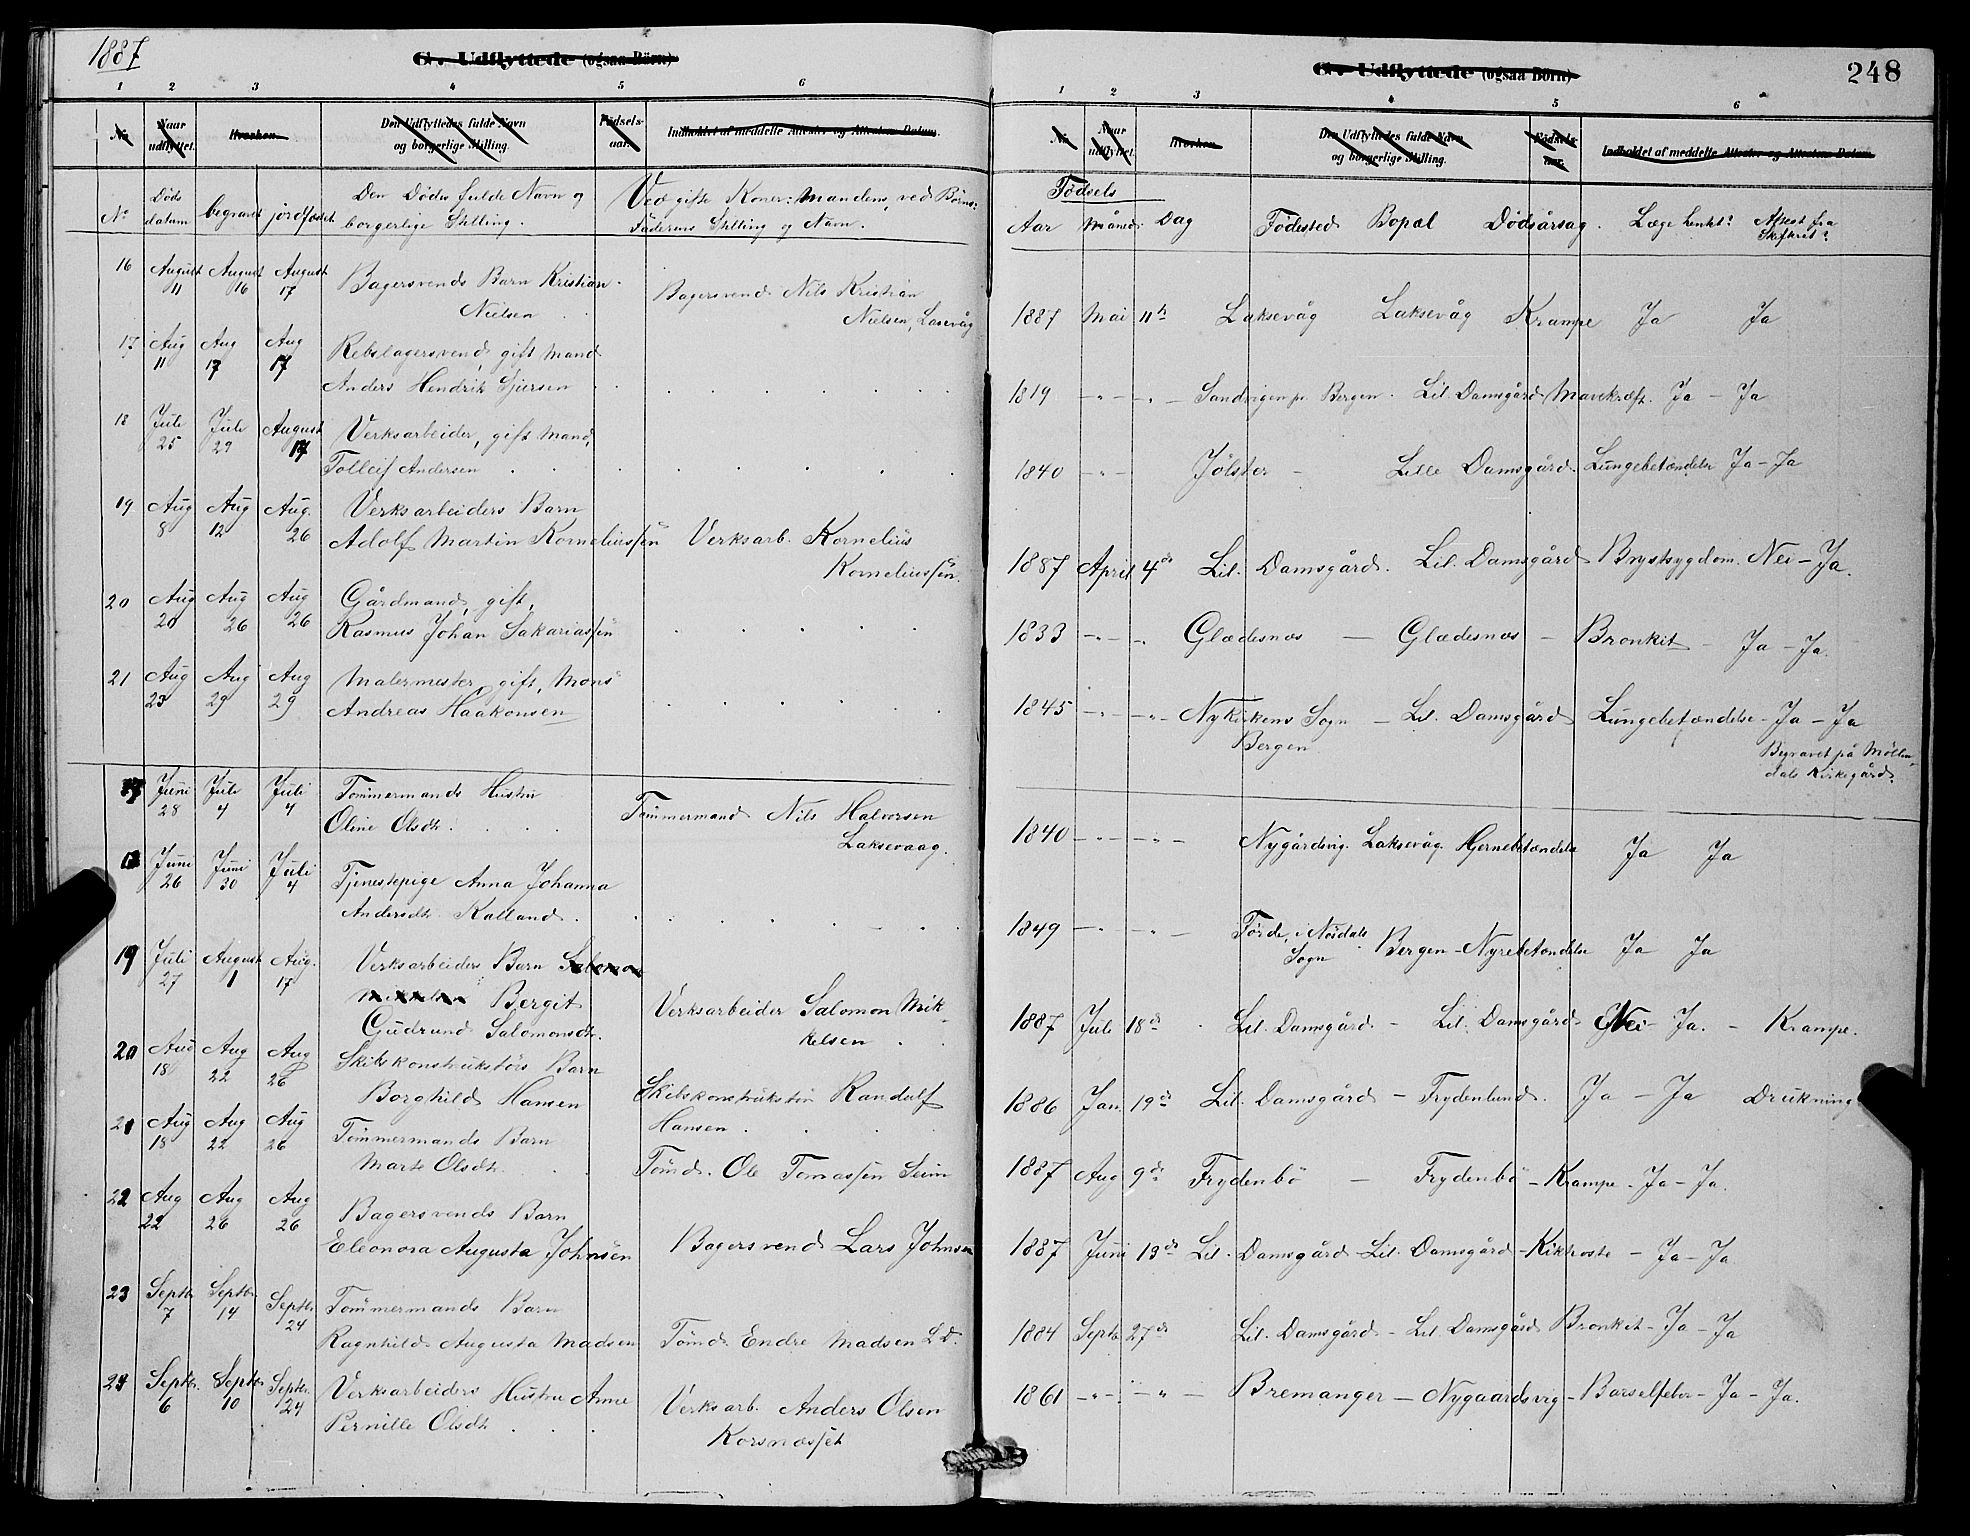 1887
G. Udflyttede (ogsaa Börn)
1 2 3 4 5 6
No. Naar udflyttet. Hvorhen. Den Udflyttedes fulde Navn og borgerlige Stilling. Fødsels-aar. Indholdet af meddelte Attester og Attesters Datum.
No Döds datum begravet jordfæstet Den Dödes fulde Navn og borgerlige Stilling. Ved gifte Koner: Mandens, ved Börns: Faderens Stilling og Navn.
16 August 11 August 16 August 17 Bagersvends Barn Kristian Nielsen Bagersvend Nils Kristian Nielsen, Lasevåg
17 Aug 11 Aug 17 Aug 17 Rebslagersvend, gift Mand Anders Hendrik Gjersen
18 Juli 25 Juli 29 August 17 Verksarbeider, gift Mand, Tolleif Andersen
19 Aug 8 Aug 12 Aug. 26 Verksarbeiders Barn Adolf Martin Korneliussen Verksarb. Kornelius Korneliussen.
20 Aug 20 Aug 26 Aug 26 Gårdmand, gift, Rasmus Johan Sakariassen
21 Aug 23 Aug 29 Aug 29 Malermester gift, Mons Andreas Haakonsen
17 Juni 28 Juli 4 Juli 4 Tømmermands Hustru Oline Olsdtr. Tømmermand Nils Halvorsen Laksevaag.
18 Juni 26 Juni 30 Juli 4 Tjenestepige Anna Johanna Andersdtr. Kalland.
19 Juli 27 August 1 Aug. 17 Verksarbeiders Barn Salomon Mikkelsen Bergit Gudrund Salomonsdtr. Verksarbeider Salomon Mikkelsen
20 Aug 18 Aug 22 Aug 26 Skibskonstruktörs Barn Borghild Hansen Skibskonstruktör Randolf Hansen
21 Aug 18 Aug 22 Aug 26 Tømmermands Barn Marte Olsdtr. Tömd. Ole Tomassen Seim
22 Aug 22 Aug 26 Aug 26 Bagersvends Barn Eleonora Augusta Johnsen Bagersvend Lars Johnsen
23 Septbr. 7 Septbr. 14 Septbr. 24 Tømmermands Barn Ragnhild Augusta Madsen Tömd. Endre Madsen L. D.
24 Septbr. 6 Septbr. 10 Septbr. 24 Verksarbeiders Hustru Anne Pernille Olsdtr. Verksarb. Anders Olsen Korsnæsset
G. Udflyttede (ogsaa Börn)
248
1 2 3 4 5 6
No. Naar udflyttet. Hvorhen. Den Udflyttedes fulde Navn og borgerlige Stilling. Fødsels-aar. Indholdet af meddelte Attester og Attesters Datum.
Fødsels
Aar Måned Dag Födested Bopæl Dødsårsag. Læge henkt? Attest fra Skifteret?
1887 Mai 11te Laksevåg Laksevåg Krampe Ja Ja
1819 Sandvigen pr. Bergen. Lil. Damsgård Mavekræft. Ja - Ja
1840 Jölster - Lille Damsgård. Lungebetændelse Ja - Ja
1887 April 4de Lil. Damsgård. Lil. Damsgård Brystsygdom. Nei - Ja.
1833 Glædesnæs - Glædesnæs - Bronkit - Ja - Ja.
1845 Nykirkens Sogn Bergen - Lil. Damsgård Lungebetændelse - Ja - Ja
Begravet på Möllendals Kirkegård.
1840 Nygårdsvig. Laksevåg. Hjernebetændelse Ja Ja
1849 Förde, i Nøsdals Sogn Bergen - Nyrebetændelse Ja Ja
1887 Juli 18de Lil. Damsgård - Lil. Damsgård. Nei - Ja. - Krampe.
1886 Jan. 19de Lil. Damsgård - Frydenlund. Ja - Ja Drukning
1887 Aug 9de Frydenbö - Frydenbö - Krampe - Ja - Ja.
1887 Juni 13de Lil. Damsgård - Lil. Damsgård - Kikhoste - Ja - Ja
1884 Septr. 27de Lil. Damsgård - Lil. Damsgård Bronkit - Ja - Ja
1861 Bremanger - Nygaardsvig - Barselfeber - Ja - Ja.